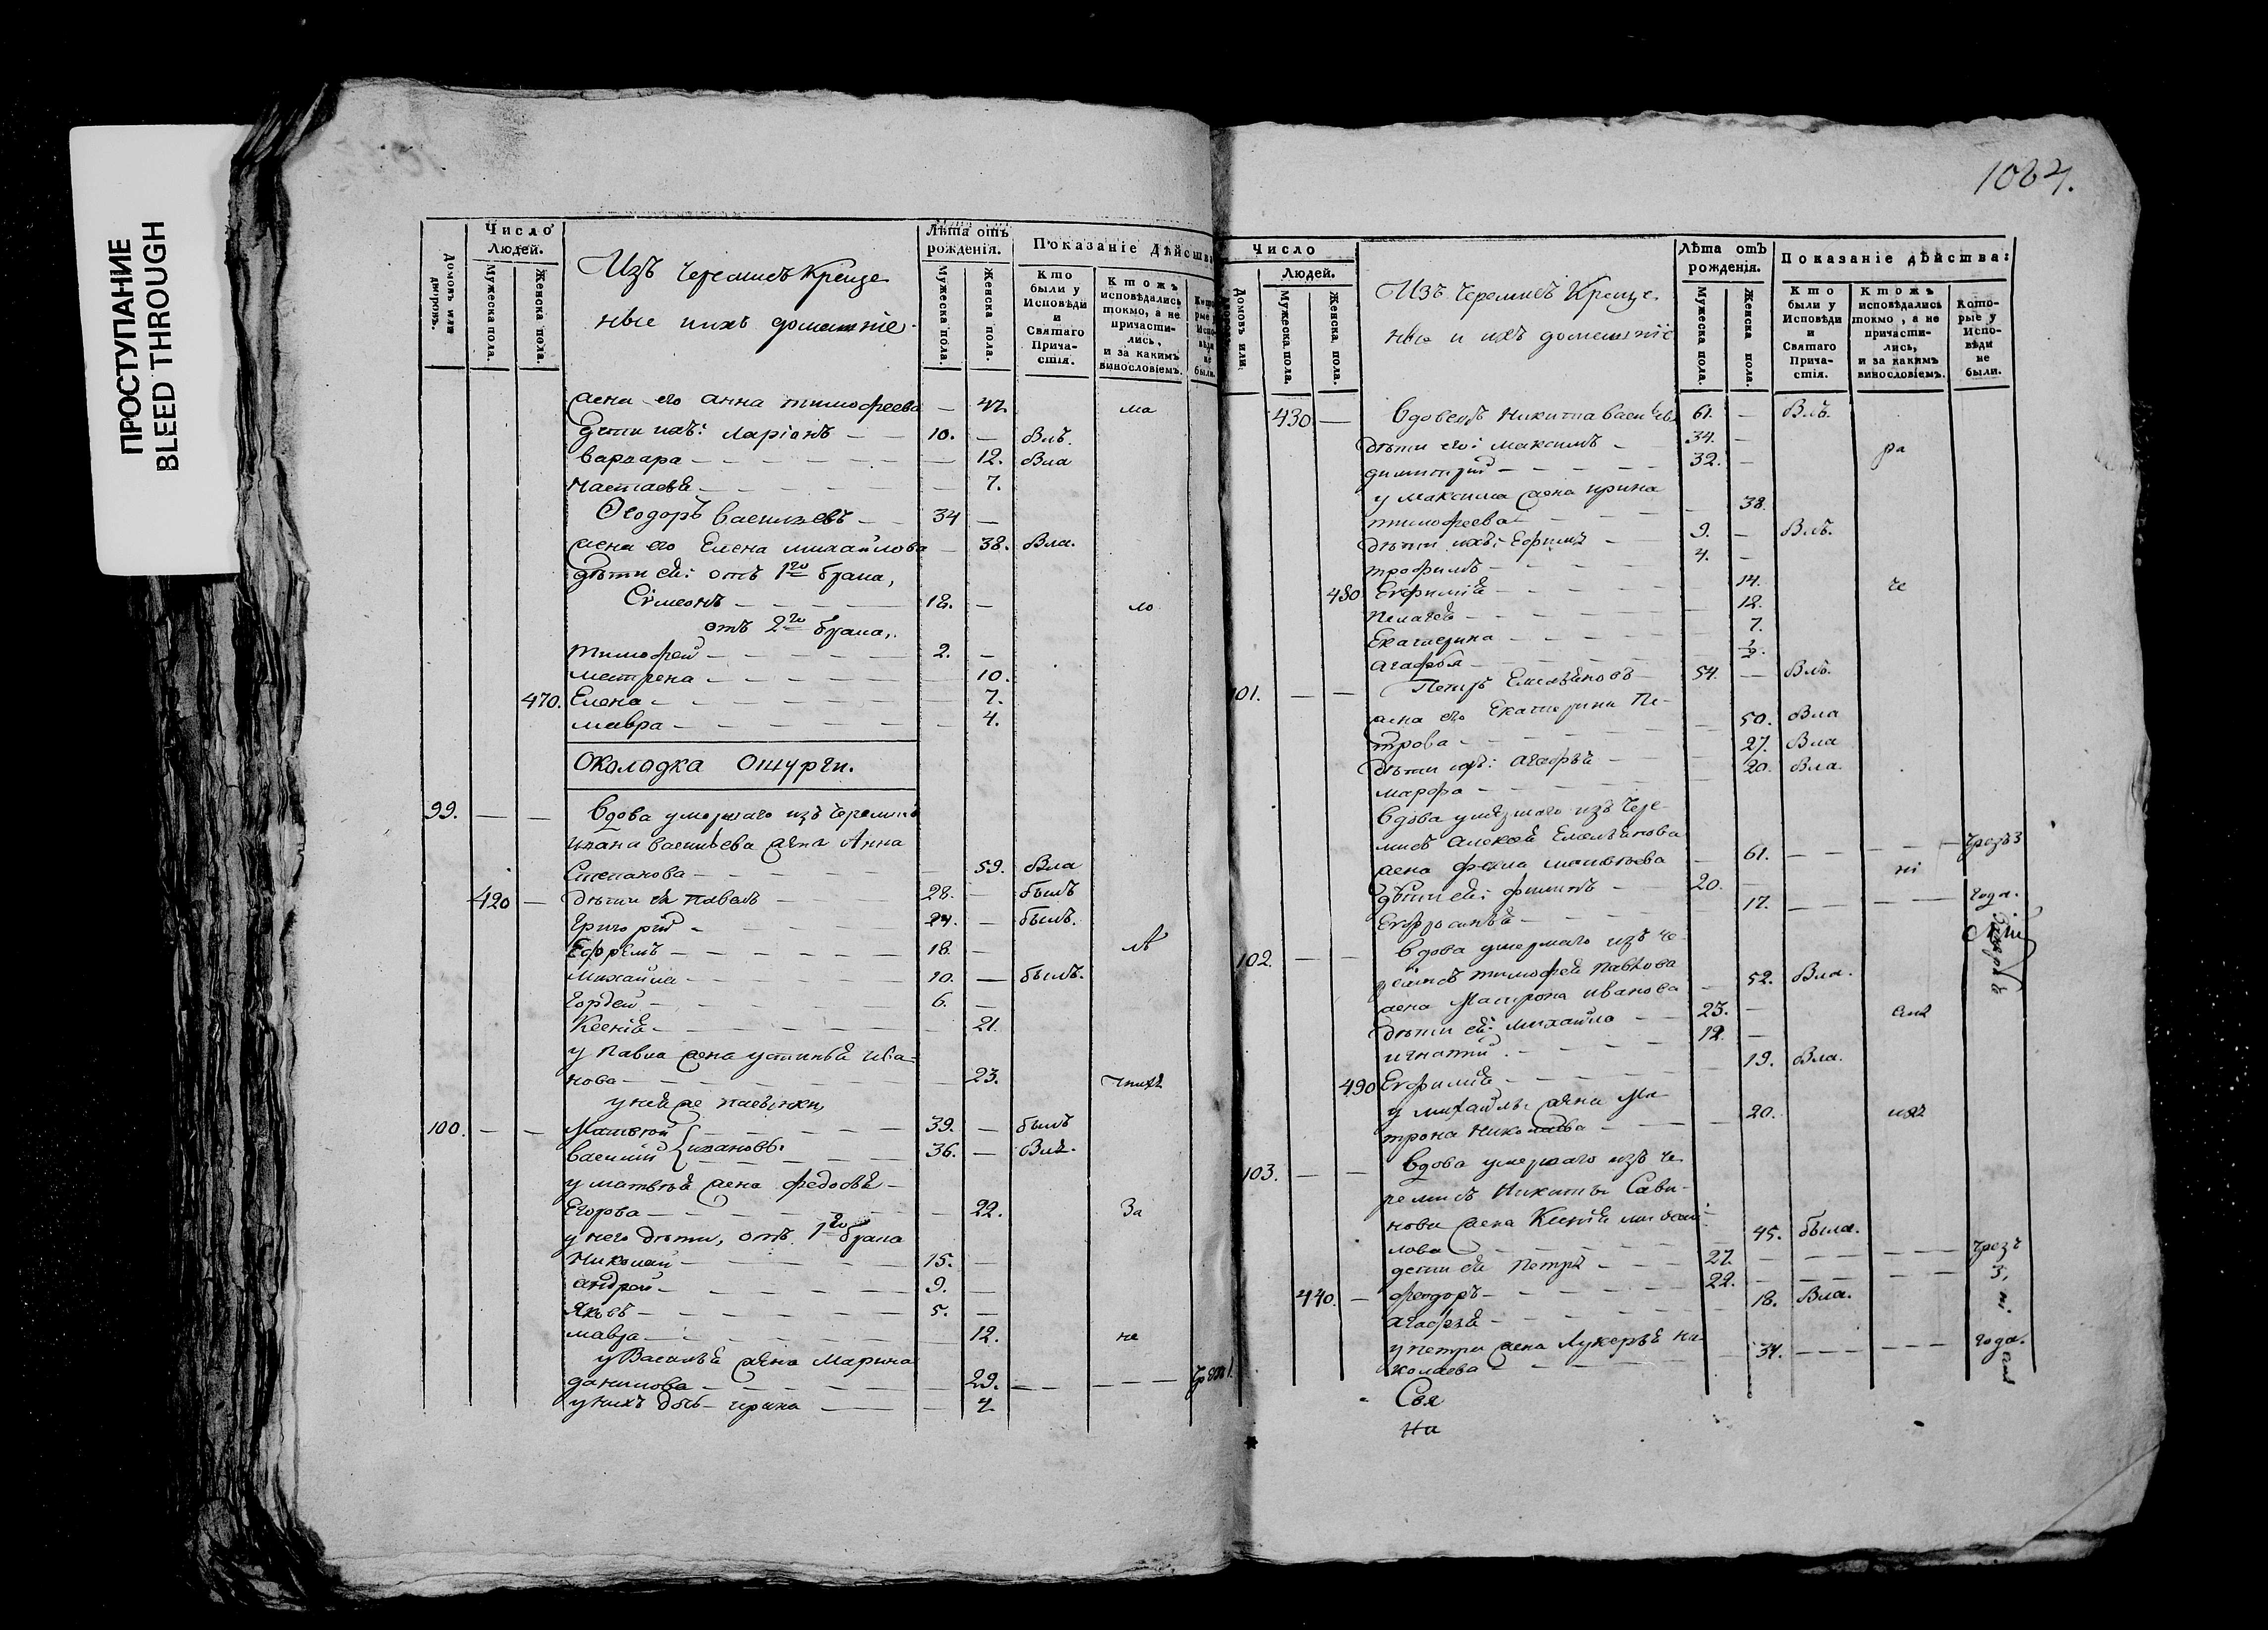 ПРОСТУПАНИЕ
BLEED THROUGH
1084.
Домовъ или дворовъ.
Число
Людей.
Мужеска пола.
Женска пола.
Изъ черемисъ Креще
ные и ихъ домашніе
Лѣта отъ
рожденія.
Мужеска пола.
Женска пола.
Показаніе дѣйства
Кто
были у
Исповѣди
и
Святаго
Прича-
стія.
Ктожъ
исповѣдались
токмо, а не
причасти-
лись,
и за какимъ
винословіемъ.
Кото
рые
Испо-
вѣди
не
были.
жена его анна тимофеева — 47. ма
дѣти ихъ: Ларіонъ — — 10. —Блъ.
варвара — — — 12. Бла
настасья — — — 7.
Ѳеодоръ васильевъ — — 34 —
жена его Елена михайлова — 38. Бла.
дѣти ея: отъ 1го брака,
Сѵмеонъ — — — 18. — ло
отъ 2го брака,
тимофей — — — 2. —
матрена — — — 10.
470. Елена — — — 7.
мавра — — — 4.
Околодка Ошурги.
99. — — вдова умершаго изъ черемисъ
ивана васильева жена Анна
Степанова — — — 59. Бла
420 — дѣти ея павелъ — — 28. — былъ
Григорій — 24. — былъ.
Ефремъ — — — 18. — лѣ
михайла — — — 10. — былъ.
Гордей — — — 6. —
Ксенія — — — 21.
у павла жена устинья ива-
нова — — — 23.
у нея же пасынки
100. — — Матвей — — — 39. — былъ
василій ивановы — — — 36. — Блъ.
у матвея жена федосья —
Егорова — — — 22. За
у него дѣти, отъ 1го брака
николай — — — 15. —
андрей — — — 9. —
Яковъ — — — 5. —
мавра — — — 12. не
у Василья жена Марина
данилова — — — 29. — — — —
у нихъ дочь ирина — — 4
Домовъ или
Число
Людей.
Мужеска пола.
Женска пола.
Изъ черемисъ Креще
ные и ихъ домашніе
Лѣта отъ
рожденія.
Мужеска пола.
Женска пола.
Показаніе дѣйства:
Кто
были у
Исповѣди
и
Святаго
Прича-
стія.
Ктожъ
исповѣдались
токмо, а не
причасти-
лись,
и за какимъ
винословіемъ.
Кото-
рые у
Испо-
вѣди
не
были.
430. — вдовецъ никита васильевъ 61. — Блъ.
дѣти его: максимъ — 34. —
димитрій — — — 32. — ра
у максима жена ирина
тимофеева — — — 38.
дѣти ихъ: Ефимъ — 9. — Блъ.
трофимъ — — — 4. —
480 Евфимія — — — 14. че
пелагея — — — 12.
Екатерина — — — 7.
агафья — — — ½.
101. — — Петръ Емельяновъ — 54. — Блъ.
жена его Екатерина Пе-
трова — — — 50. Бла
дѣти ихъ: агафья — — 27. Бла
марфа — — — 20. Бла.
вдова умершаго изъ чере-
мисъ алексея Емельянова
жена фекла матвеева — 61. — — — чрезъ
дѣти ея: филипъ — 20. — ні
Евфросинья — — — 17. — — — года.
102. — — вдова умершаго изъ че
ремисъ тимофея павлова
жена Матрона иванова — 52. Бла.
дѣти ея: михайло — — 23. —
игнатій — — — 12. —
490 Евфимія — — — 19. Бла.
у михайлы жена Ма-
трона николаева — — — 20.
103. — — вдова умершаго изъ че
ремисъ никиты Сави-
нова жена Ксенія михай
лова — — — 45. была.
дети ея петръ — — 27. — — — чрезъ
440. — феодоръ — — — 22. — — — 3,
агафья — — — 18. Бла.
у петра жена Лукерья ни-
колаева — — — 34. — — — года.
Свя
На